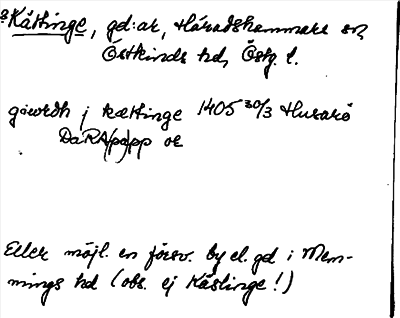 ?Kättinge, gd:ar, Häradshammars sn,
Östkinds hd, Östg. l.
giwrdh j kættinge 1405 30/3 Husarö
DaRA(pa)pp or
Eller möjl. en försv. by el. gd i Mem-
mings hd (obs. ej Kästinge!)